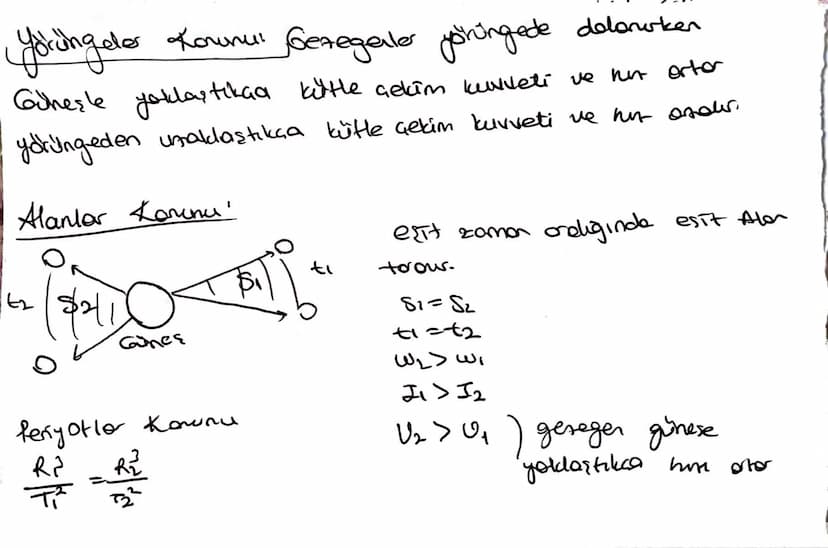 Yörüngeler Kanunu: Gezegenler yörüngede dolanırken
Güneşle yaklaştıkça kütle çekim kuvveti ve hız artar
yörüngeden uzaklaştıkça kütle çekim kuvveti ve hız azalır.
Alanlar Kanunu:
eşit zaman aralığında eşit Alan
tarar.
t2 S2 S1 t1
Güneş
S1 = S2
t1 = t2
ω2 > ω1
I1 > I2
υ2 > υ1 ) gezegen güneşe
yaklaştıkça hızı artar
Periyotlar Kanunu
R1³/T1² = R2³/T2²